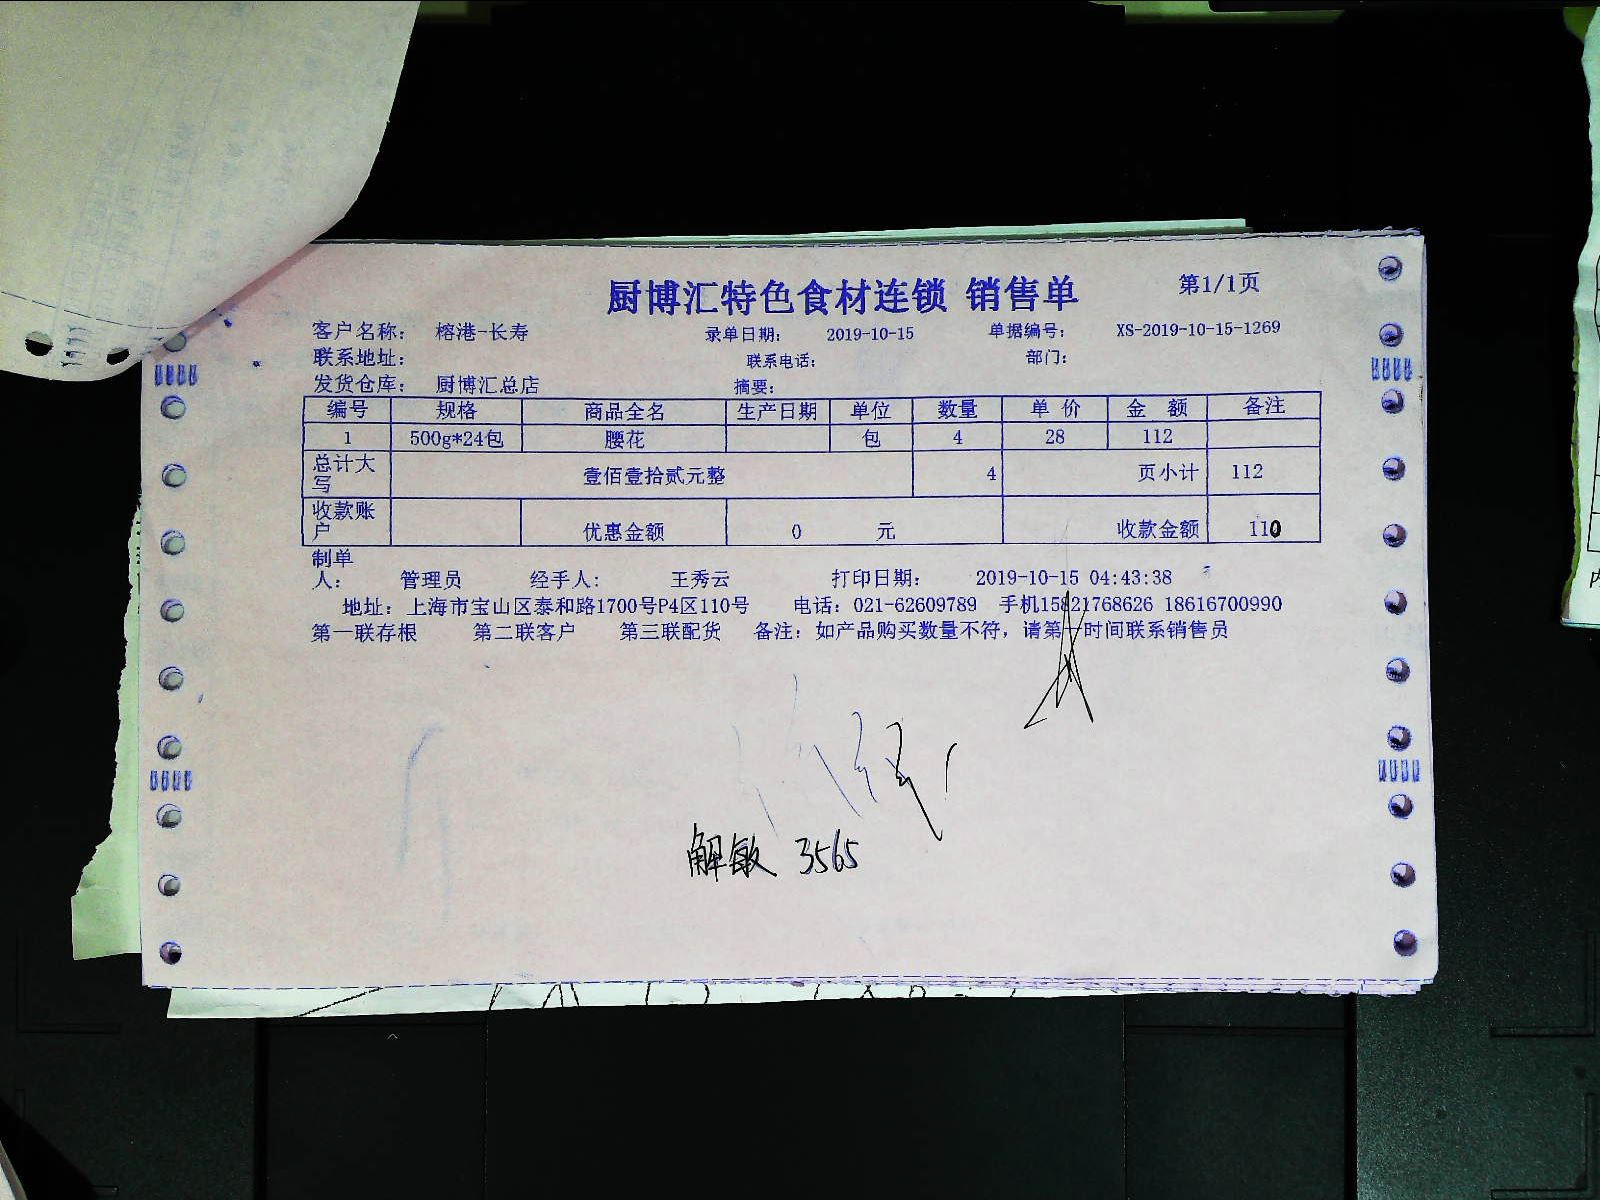 厨博汇特色食材连锁 销售单 第1/1页
客户名称： 榕港-长寿 录单日期： 2019-10-15 单据编号： XS-2019-10-15-1269
联系地址： 联系电话： 部门：
发货仓库： 厨博汇总店 摘要：
编号 规格 商品全名 生产日期 单位 数量 单 价 金 额 备注
1 500g*24包 腰花 包 4 28 112
总计大写 壹佰壹拾贰元整 4 页小计 112
收款账户 优惠金额 0 元 收款金额 110
制单人： 管理员 经手人： 王秀云 打印日期： 2019-10-15 04:43:38
地址：上海市宝山区泰和路1700号P4区110号 电话：021-62609789 手机15821768626 18616700990
第一联存根 第二联客户 第三联配货 备注：如产品购买数量不符，请第一时间联系销售员
解敏 3565